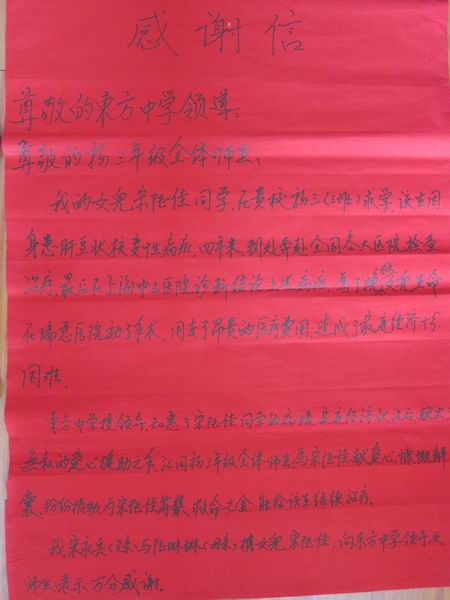 感谢信
尊敬的東方中学领导:
尊敬的初三年级全体师生:
我的女兒宋陆佳同学,在贵校初三(三班)求学,该生因
身患肝豆状核变性病症,四年来,到处奔赴全国各大医院检查
治疗,最后在上海中山医院诊断结论上述病症,为了挽救女兒生命
在瑞慈医院动了手术,用去了昂贵的医疗费用,造成了家庭经济十分
困难。
東方中学校领导,知悉了宋陆佳同学的病情,家庭经济状况后,献出
無私的爱心援助之手,汇同初三年级全体师生,为宋陆佳献爱心,慷慨解
囊、纷纷捐助,为宋陆佳筹集救命之金,能给该生继续治疗。
我宋永兵(父亲)与陆琳琳(母亲)携女兒宋陆佳,向东方中学领导及
师生表示万分感谢。